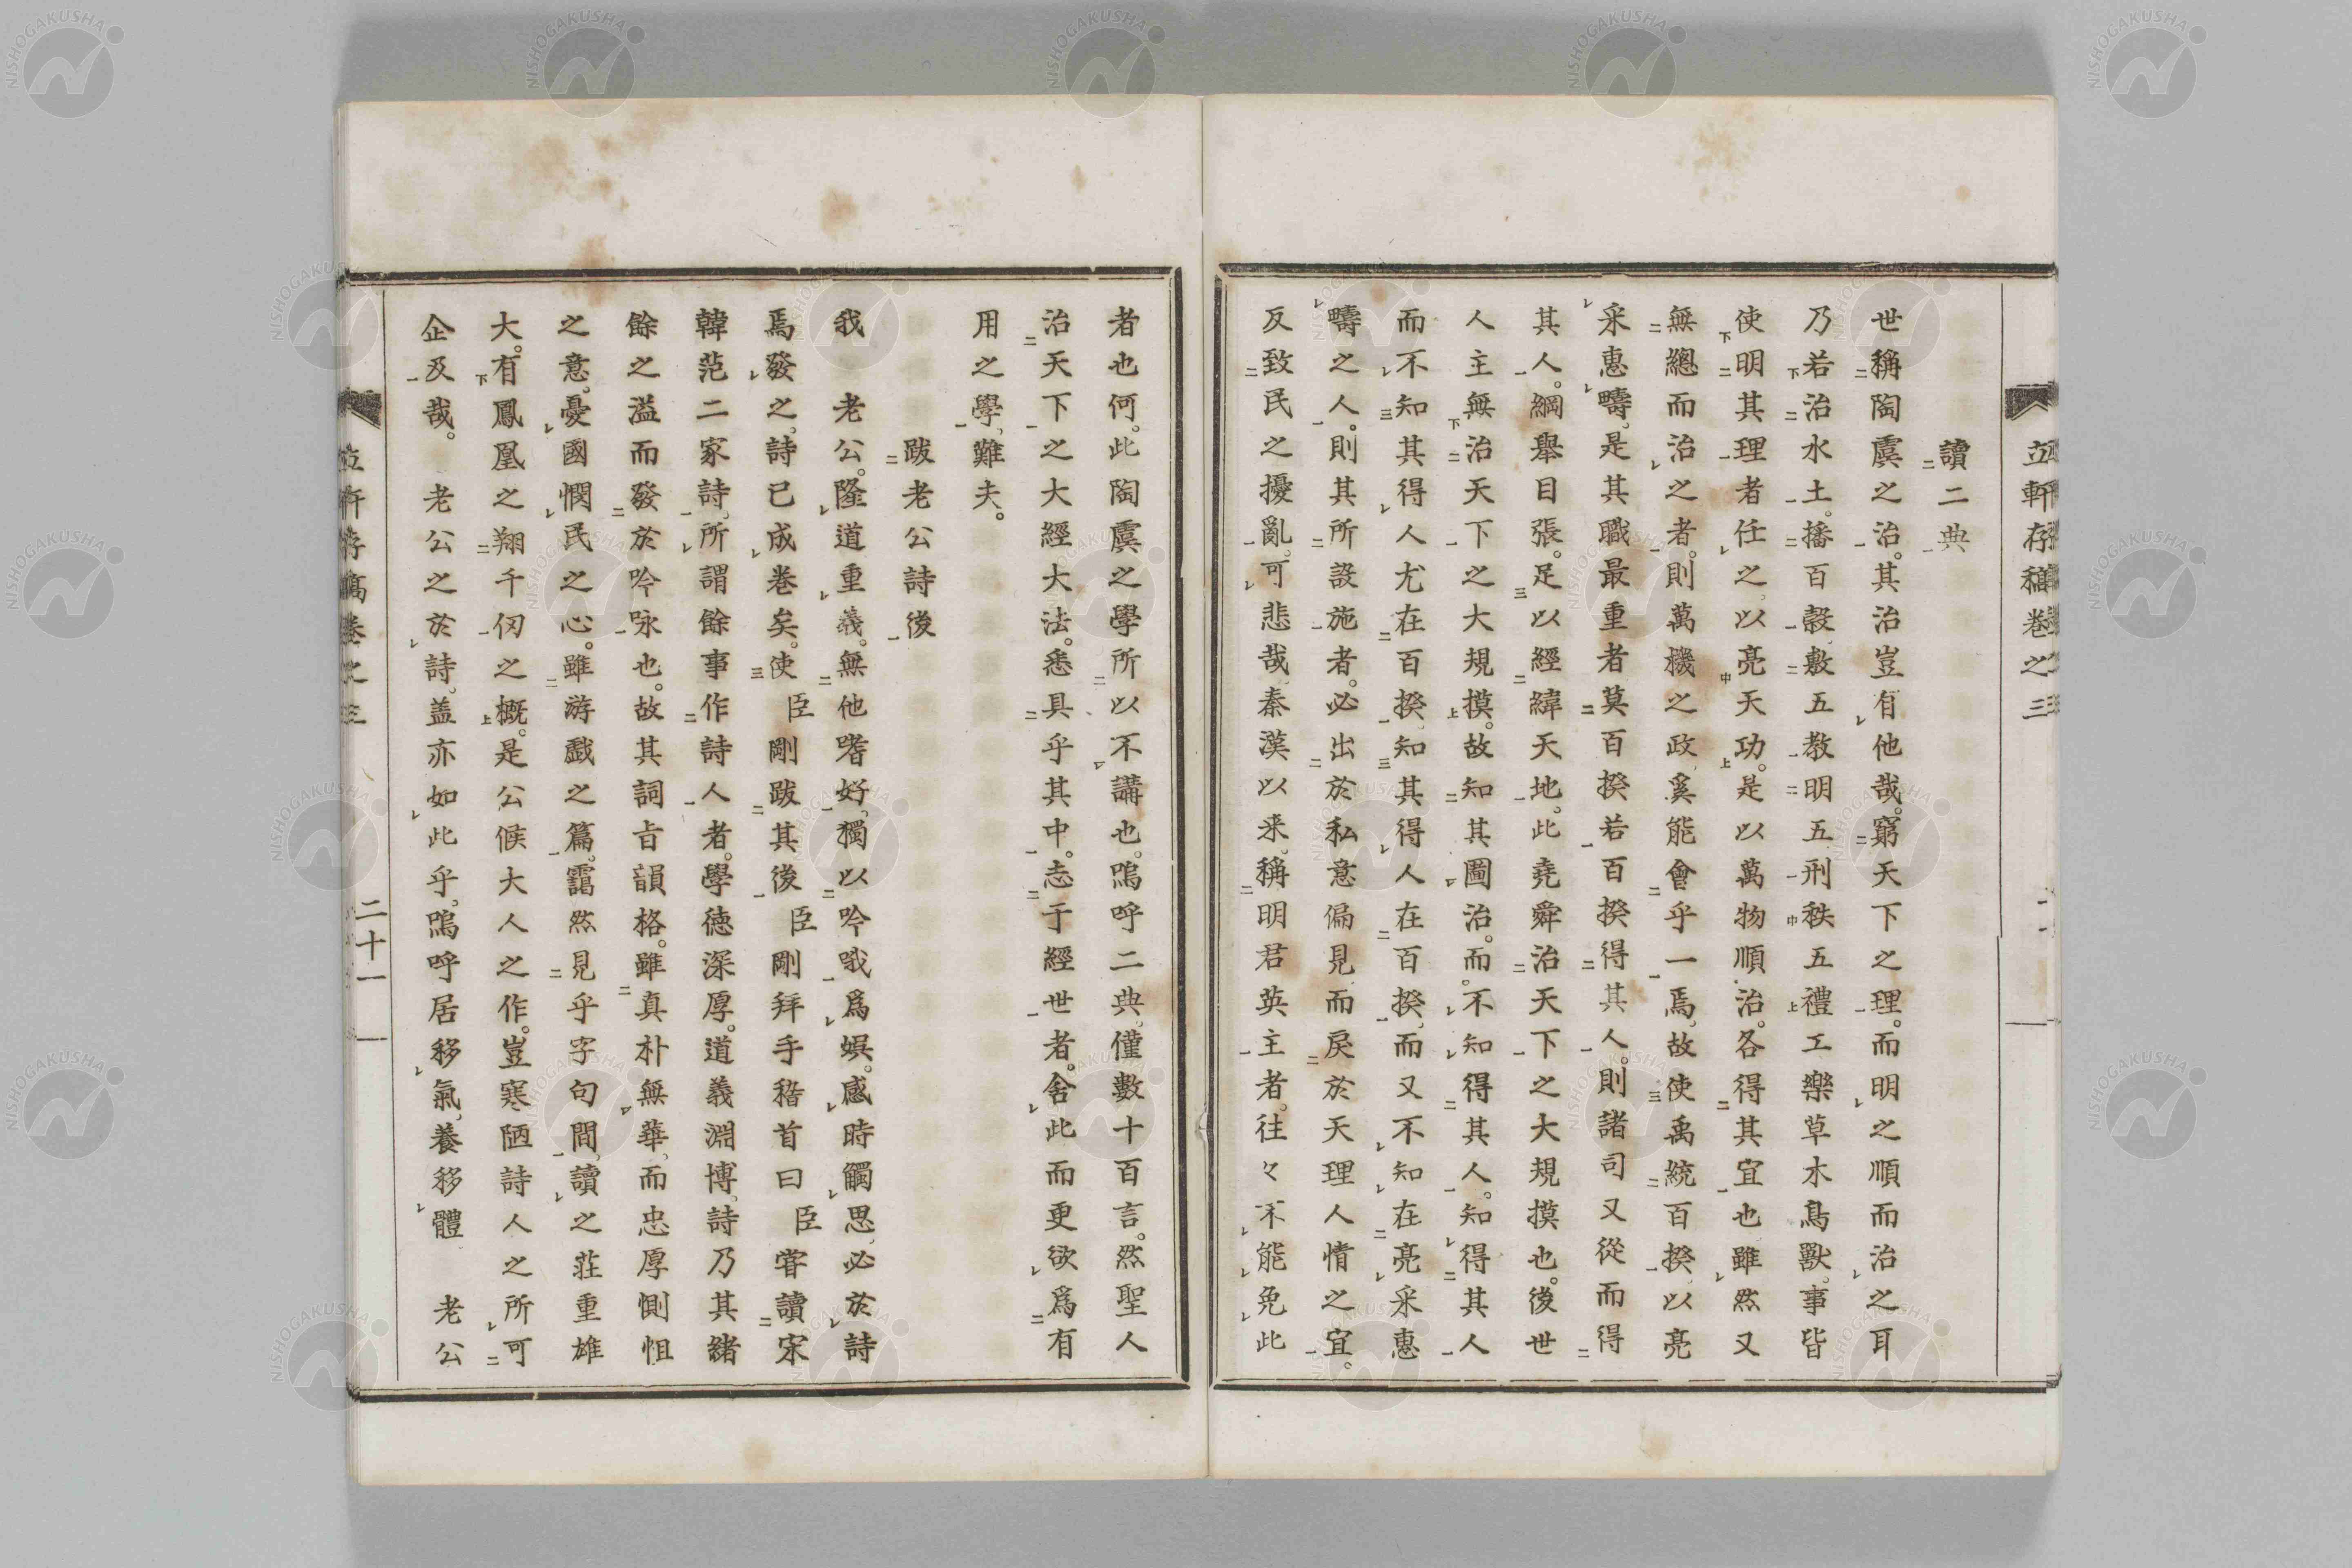 立軒存稿卷之三
讀二典
世稱陶虞之治。其治豈有他哉。窮天下之理。而明之順而治之耳
乃若治水土。播百穀、敷五教、明五刑、秩五禮、工樂草木鳥獸。事皆
使明其理者任之、以亮天功。是以萬物順治。各得其宜也雖然又
無總而治之者。則萬機之政、奚能會乎一焉、故使禹統百揆、以亮
采惠疇。是其職最重者莫百揆若百揆得其人。則諸司又從而得
其人。綱舉目張。足以經緯天地。此堯舜治天下之大規摸也。後世
人主無治天下之大規摸。故知其圖治。而不知得其人。知得其人
而不知其得人尤在百揆、知其得人在百揆、而又不知在亮采惠
疇之人。則其所設施者。必出於私意偏見、而戾於天理人情之宜。
反致民之擾亂。可悲哉秦漢以来。稱明君英主者。往々不能免此
者也何。此陶虞之學所以不講也。嗚呼二典、僅數十百言。然聖人
治天下之大經大法。悉具乎其中。志于經世者。舍此而更欲爲有
用之學、難夫。
跋老公詩後
我　老公。隆道重義。無他嗜好。獨以吟哦爲娯。感時觸思、必於詩
焉發之、詩已成卷矣。使臣剛跋其後臣剛拜手稽首曰臣甞讀宋
韓范二家詩、所謂餘事作詩人者。學徳深厚。道義淵博、詩乃其緒
餘之溢而發於吟咏也。故其詞旨韻格。雖真朴無華、而忠厚惻怛
之意。憂國憫民之心。雖游戯之篇、靄然見乎字句間、讀之荘重雄
大。有鳳凰之翔千仞之概。是公候大人之作。豈寒陋詩人之所可
企及哉。　老公之於詩、盖亦如此乎。嗚呼居移氣、養移體　老公
立軒存稿卷之三
二十一